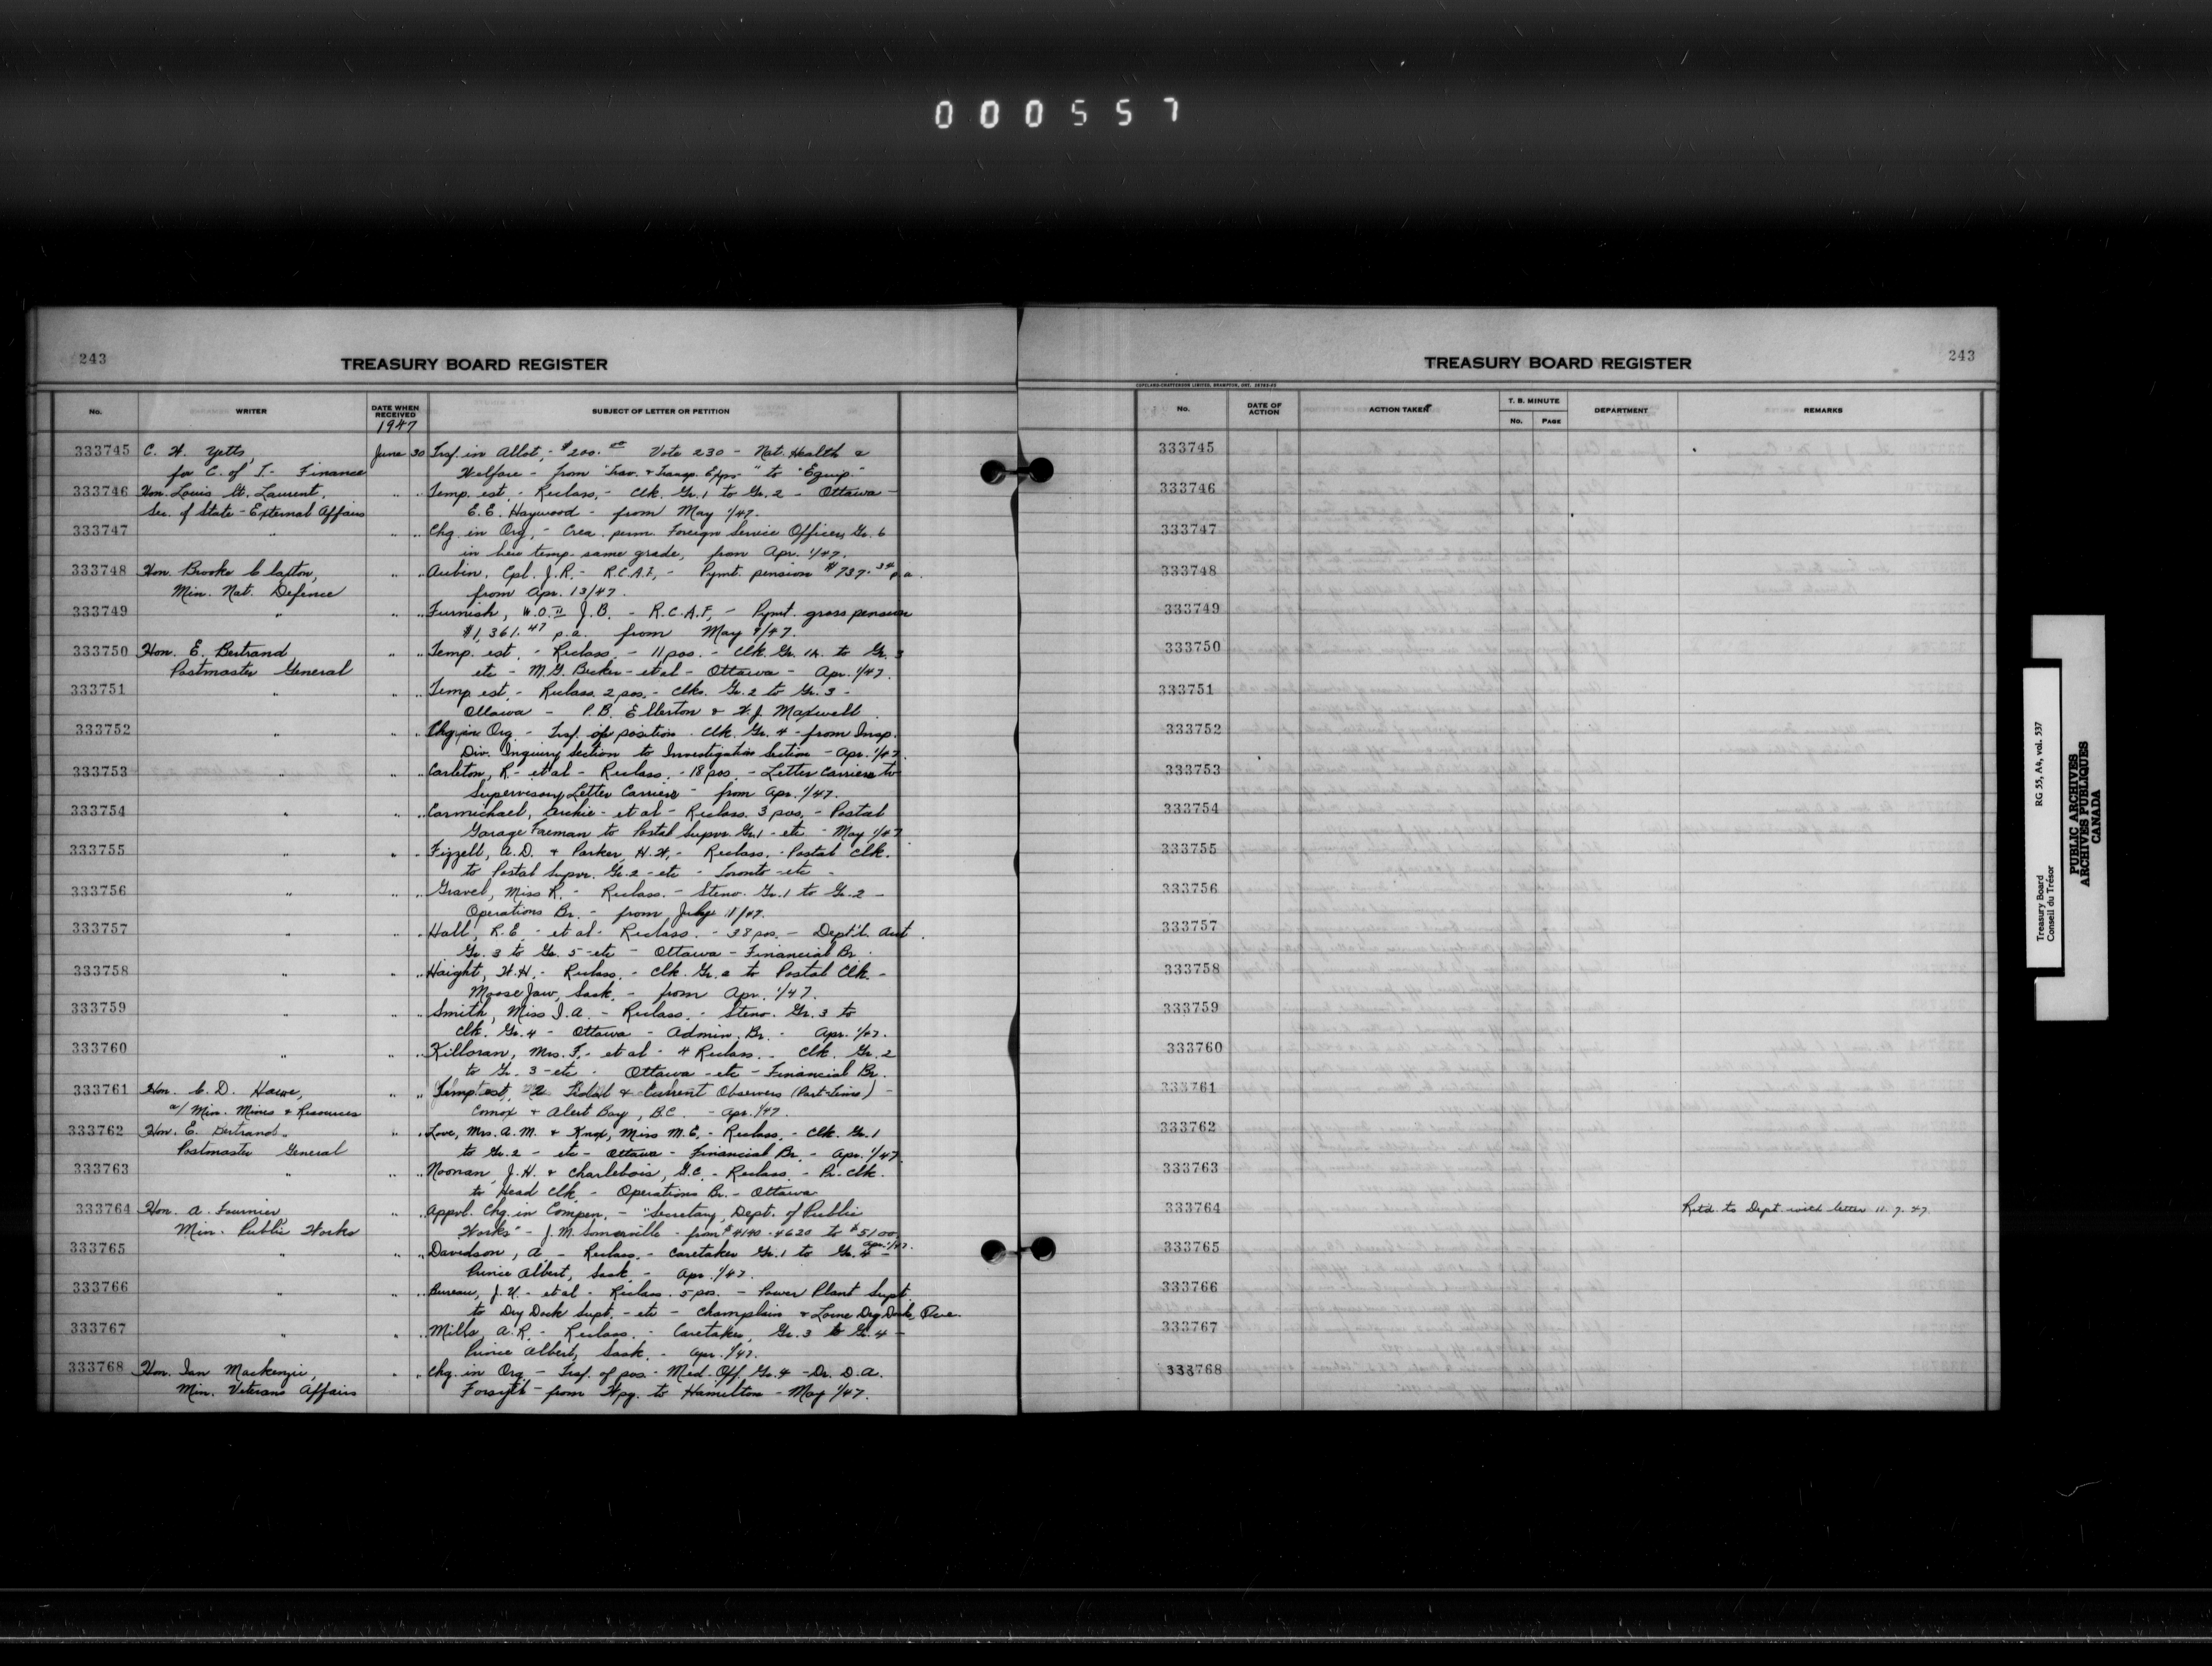 000557
243
TREASURY BOARD REGISTER
No. WRITER DATE WHEN RECEIVED SUBJECT OF LETTER OR PETITION
1947
333745 C. H. Yetts, June 30 Trsf. in Allot, - $200.00 Vote 230 - Nat. Health &
for C. of T. - Finance Welfare - from "Trav. & Transp. Exps." to "Equip"
333746 Hon. Louis St. Laurent, " " Temp. est. - Reclass. - Clk. Gr. 1 to Gr. 2 - Ottawa -
Sec. of State - External Affairs E.E. Haywood - from May 1/47.
333747 " " " Chg. in Org. - Crea. perm. Foreign Service Officer, Gr. 6
in lieu temp. same grade, from Apr. 1/47.
333748 Hon. Brooke Claxton, " " Aubin, Cpl. J.R. - R.C.A.F. - Pymt. pension $737.34 p.a.
Min. Nat. Defence from Apr. 13/47.
333749 " " " Furnish, W.O. II J.B. - R.C.A.F. - Pymt. gross pension
$1,361.47 p.a. from May 9/47.
333750 Hon. E. Bertrand " " Temp. est. - Reclass. - 11 pos. - Clk. Gr. 1A to Gr. 3
Postmaster General etc - M.G. Becker - et al - Ottawa - Apr. 1/47.
333751 " " " Temp. est. - Reclass. 2 pos. - Clks. Gr. 2 to Gr. 3 -
Ottawa - P.B. Ellerton & W.J. Maxwell
333752 " " " Chg. in Org. - Trsf. of position - Clk. Gr. 4 - from Insp.
Div. Inquiry Section to Investigation Section - Apr. 1/47
333753 " " " Carleton, R. - et al - Reclass. - 18 pos. - Letter Carriers to
Supervisory Letter Carriers - from Apr. 1/47.
333754 " " " Carmichael, Archie - et al - Reclass. 3 pos. - Postal
Garage Foreman to Postal Supvr. Gr. 1 - etc - May 1/47
333755 " " " Fizzell, A.D. & Parker, H.W. - Reclass. - Postal Clk.
to Postal Supvr. Gr. 2 - etc - Toronto - etc -
333756 " " " Gravel, Miss R. - Reclass. - Steno. Gr. 1 to Gr. 2 -
Operations Br. - from July 1/47.
333757 " " " Hall, R.E. - et al - Reclass. - 38 pos. - Dept'l. Acct.
Gr. 3 to Gr. 5 - etc - Ottawa - Financial Br.
333758 " " " Haight, W.H. - Reclass. - Clk. Gr. 2 to Postal Clk. -
Moose Jaw, Sask. - from Apr. 1/47.
333759 " " " Smith, Miss I.A. - Reclass. - Steno. Gr. 3 to
Clk. Gr. 4 - Ottawa - Admin. Br. - Apr. 1/47.
333760 " " " Killoran, Mrs. F. - et al - 4 Reclass. - Clk. Gr. 2
to Gr. 3 - etc - Ottawa - etc - Financial Br.
333761 Hon. C. D. Howe, " " Temp. est. 2 Tidal & Current Observers (Part-time) -
a/ Min. Mines & Resources Comox & Alert Bay, B.C. - Apr. 1/47.
333762 Hon. E. Bertrand, " " Love, Mrs. A.M. & Knox, Miss M.E. - Reclass. - Clk. Gr. 1
Postmaster General to Gr. 2 - etc - Ottawa - Financial Br. - Apr. 1/47
333763 " " " Noonan, J.H. & Charlebois, G.C. - Reclass. - Pr. Clk.
to Head Clk. - Operations Br. - Ottawa
333764 Hon. A. Fournier " " Appvl. Chg. in Compen. - "Secretary, Dept. of Public
Min. Public Works Works" - J.M. Somerville - from $4140 - 4620 to $5100
Apr. 1/47.
333765 " " " Davidson, A. - Reclass. - Caretaker Gr. 1 to Gr. 4 -
Prince Albert, Sask. - Apr. 1/47.
333766 " " " Bureau, J.U. - et al - Reclass. 5 pos. - Power Plant Supt.
to Dry Dock Supt. - etc - Champlain & Lorne Dry Dock, Que.
333767 " " " Mills, A.R. - Reclass. - Caretaker, Gr. 3 to Gr. 4 -
Prince Albert, Sask. - Apr. 1/47.
333768 Hon. Ian Mackenzie, " " Chg. in Org. - Trsf. of pos. - Med. Off. Gr. 4 - Dr. D.A.
Min. Veterans Affairs Forsyth - from Wpg. to Hamilton - May 1/47.
TREASURY BOARD REGISTER
243
COPELAND-CHATTERSON LIMITED, BRAMPTON, ONT.
No. DATE OF ACTION ACTION TAKEN T. B. MINUTE No. PAGE DEPARTMENT REMARKS
333745
333746
333747
333748
333749
333750
333751
333752
333753
333754
333755
333756
333757
333758
333759
333760
333761
333762
333763
333764 Retd. to Dept. with letter 11. 7. 47.
333765
333766
333767
333768
Treasury Board RG 55, A4, vol. 537
Conseil du Trésor
PUBLIC ARCHIVES
ARCHIVES PUBLIQUES
CANADA